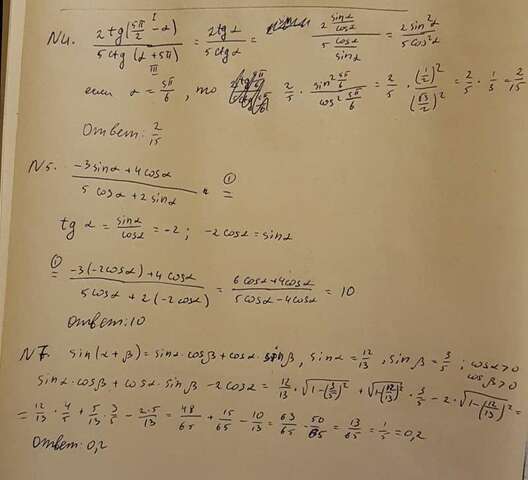 N4. \frac{2 tg(\frac{5π}{2} - α)}{5 ctg(α + 5π)} = \frac{2tgα}{5ctgα} = \frac{2 \frac{sinα}{cosα}}{5 \frac{cosα}{sinα}} = \frac{2sin²α}{5cos²α}
если α = \frac{5π}{6}, то \frac{2}{5} · \frac{sin² \frac{5π}{6}}{cos² \frac{5π}{6}} = \frac{2}{5} · \frac{(\frac{1}{2})²}{(\frac{√3}{2})²} = \frac{2}{5} · \frac{1}{3} = \frac{2}{15}
Ответ: \frac{2}{15}
N5. \frac{-3sinα + 4cosα}{5cosα + 2sinα} ①=
tg α = \frac{sinα}{cosα} = -2; -2cosα = sinα
①= \frac{-3(-2cosα) + 4cosα}{5cosα + 2(-2cosα)} = \frac{6cosα + 4cosα}{5cosα - 4cosα} = 10
Ответ: 10
N7. sin(α + β) = sinα · cosβ + cosα · sinβ, sinα = \frac{12}{13}, sinβ = \frac{3}{5}; cosα > 0 cosβ > 0
sinα · cosβ + cosα · sinβ - 2cosα = \frac{12}{13} · \sqrt{1 - (\frac{3}{5})²} + \sqrt{1 - (\frac{12}{13})²} · \frac{3}{5} - 2 · \sqrt{1 - (\frac{12}{13})²} =
= \frac{12}{13} · \frac{4}{5} + \frac{5}{13} · \frac{3}{5} - \frac{2·5}{13} = \frac{48}{65} + \frac{15}{65} - \frac{10}{13} = \frac{63}{65} - \frac{50}{65} = \frac{13}{65} = \frac{1}{5} = 0,2
Ответ: 0,2